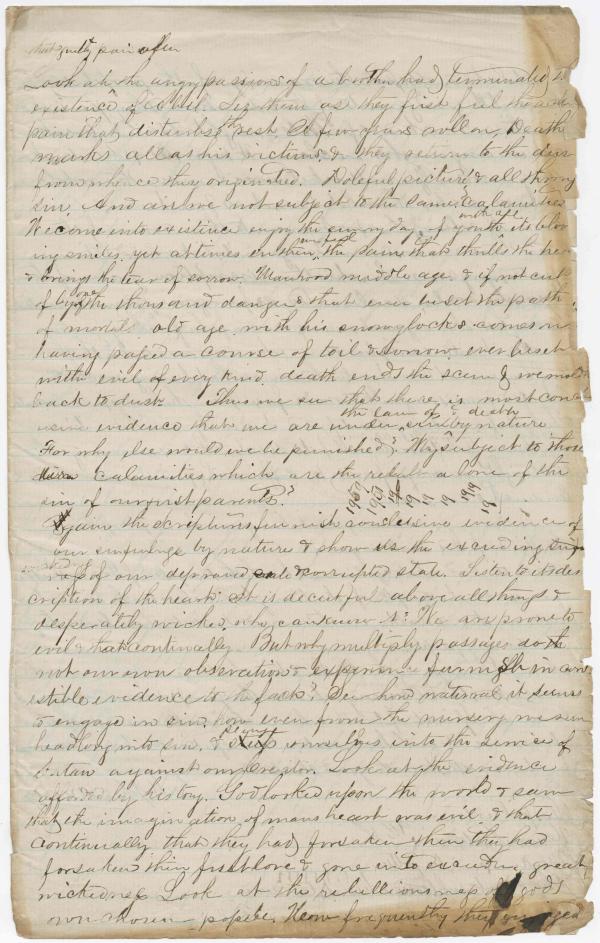 that guilty pair after
Look at the angry passions of a brother had terminated the
existence of Abel. See them as they first feel the
pain that disturbs the rest. A few years roll on, Death
marks all as his victims, & they return to the dust
from whence they originated. Doleful picture & all through
sin. And are we not subject to the same calamities
We come into existence enjoy the sunny day of youth with all its bloo
ing smiles, yet at times even then we feel the pains that thrills the hea
& brings the tear of sorrow. Manhood middle age & if not cut
off by one of the thousand dangers that ever beset the path
of mortals old age with his snowy locks comes on
having passed a course of toil & sorrow ever beset
with evil of every kind, death ends the scene & we mold
back to dust. Thus we see that there is most conc
usive evidence that we are under the law of sin & death by nature
For why else would we be punished? Why subject to those
calamities which are the result alone of the
sin of our first parents?
1959 1959 19 19 19 19 1919 19
Again the scriptures furnish conclusive evidence of
our sinfulness by nature & show us the exceeding
ness of our depraved & corrupted state. Listen to its des
cription of the heart: It is deceitful above all things &
desperately wicked, who can know it: We are prone to
evil & that continually But why multiply passages doth
not our own observation & experience furnish in con
estible evidence to the fact? See how natural it seems
to engage in sin, how even from the nursery we run
headlong into sin, & ourselves into the service of
Satan against our Creator. Look at the evidence
afforded by history. God looked upon the world & saw
that the imagination of mans heart was evil & that
continually that they had forsaken their they had
forsaken their first love & gone into exceeding great
wickedness Look at the rebelliousness of gods
own chosen people. How frequently they